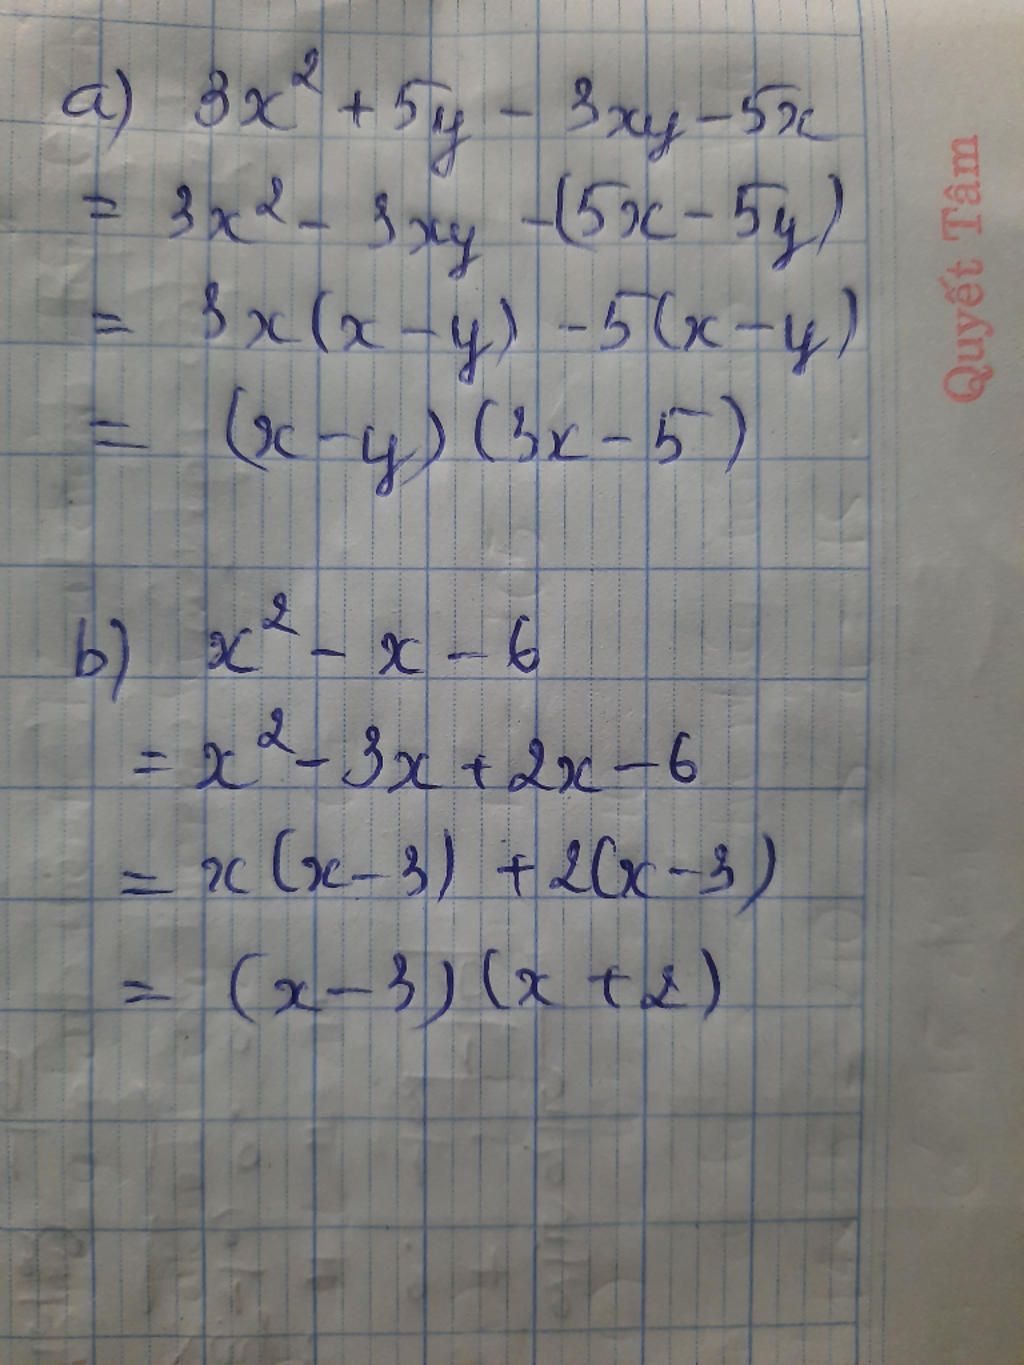 a) 3x² + 5y - 3xy - 5x
= 3x² - 3xy - (5x - 5y)
= 3x(x - y) - 5(x - y)
= (x - y) (3x - 5)
b) x² - x - 6
= x² - 3x + 2x - 6
= x(x - 3) + 2(x - 3)
= (x - 3) (x + 2)
Quyết Tâm